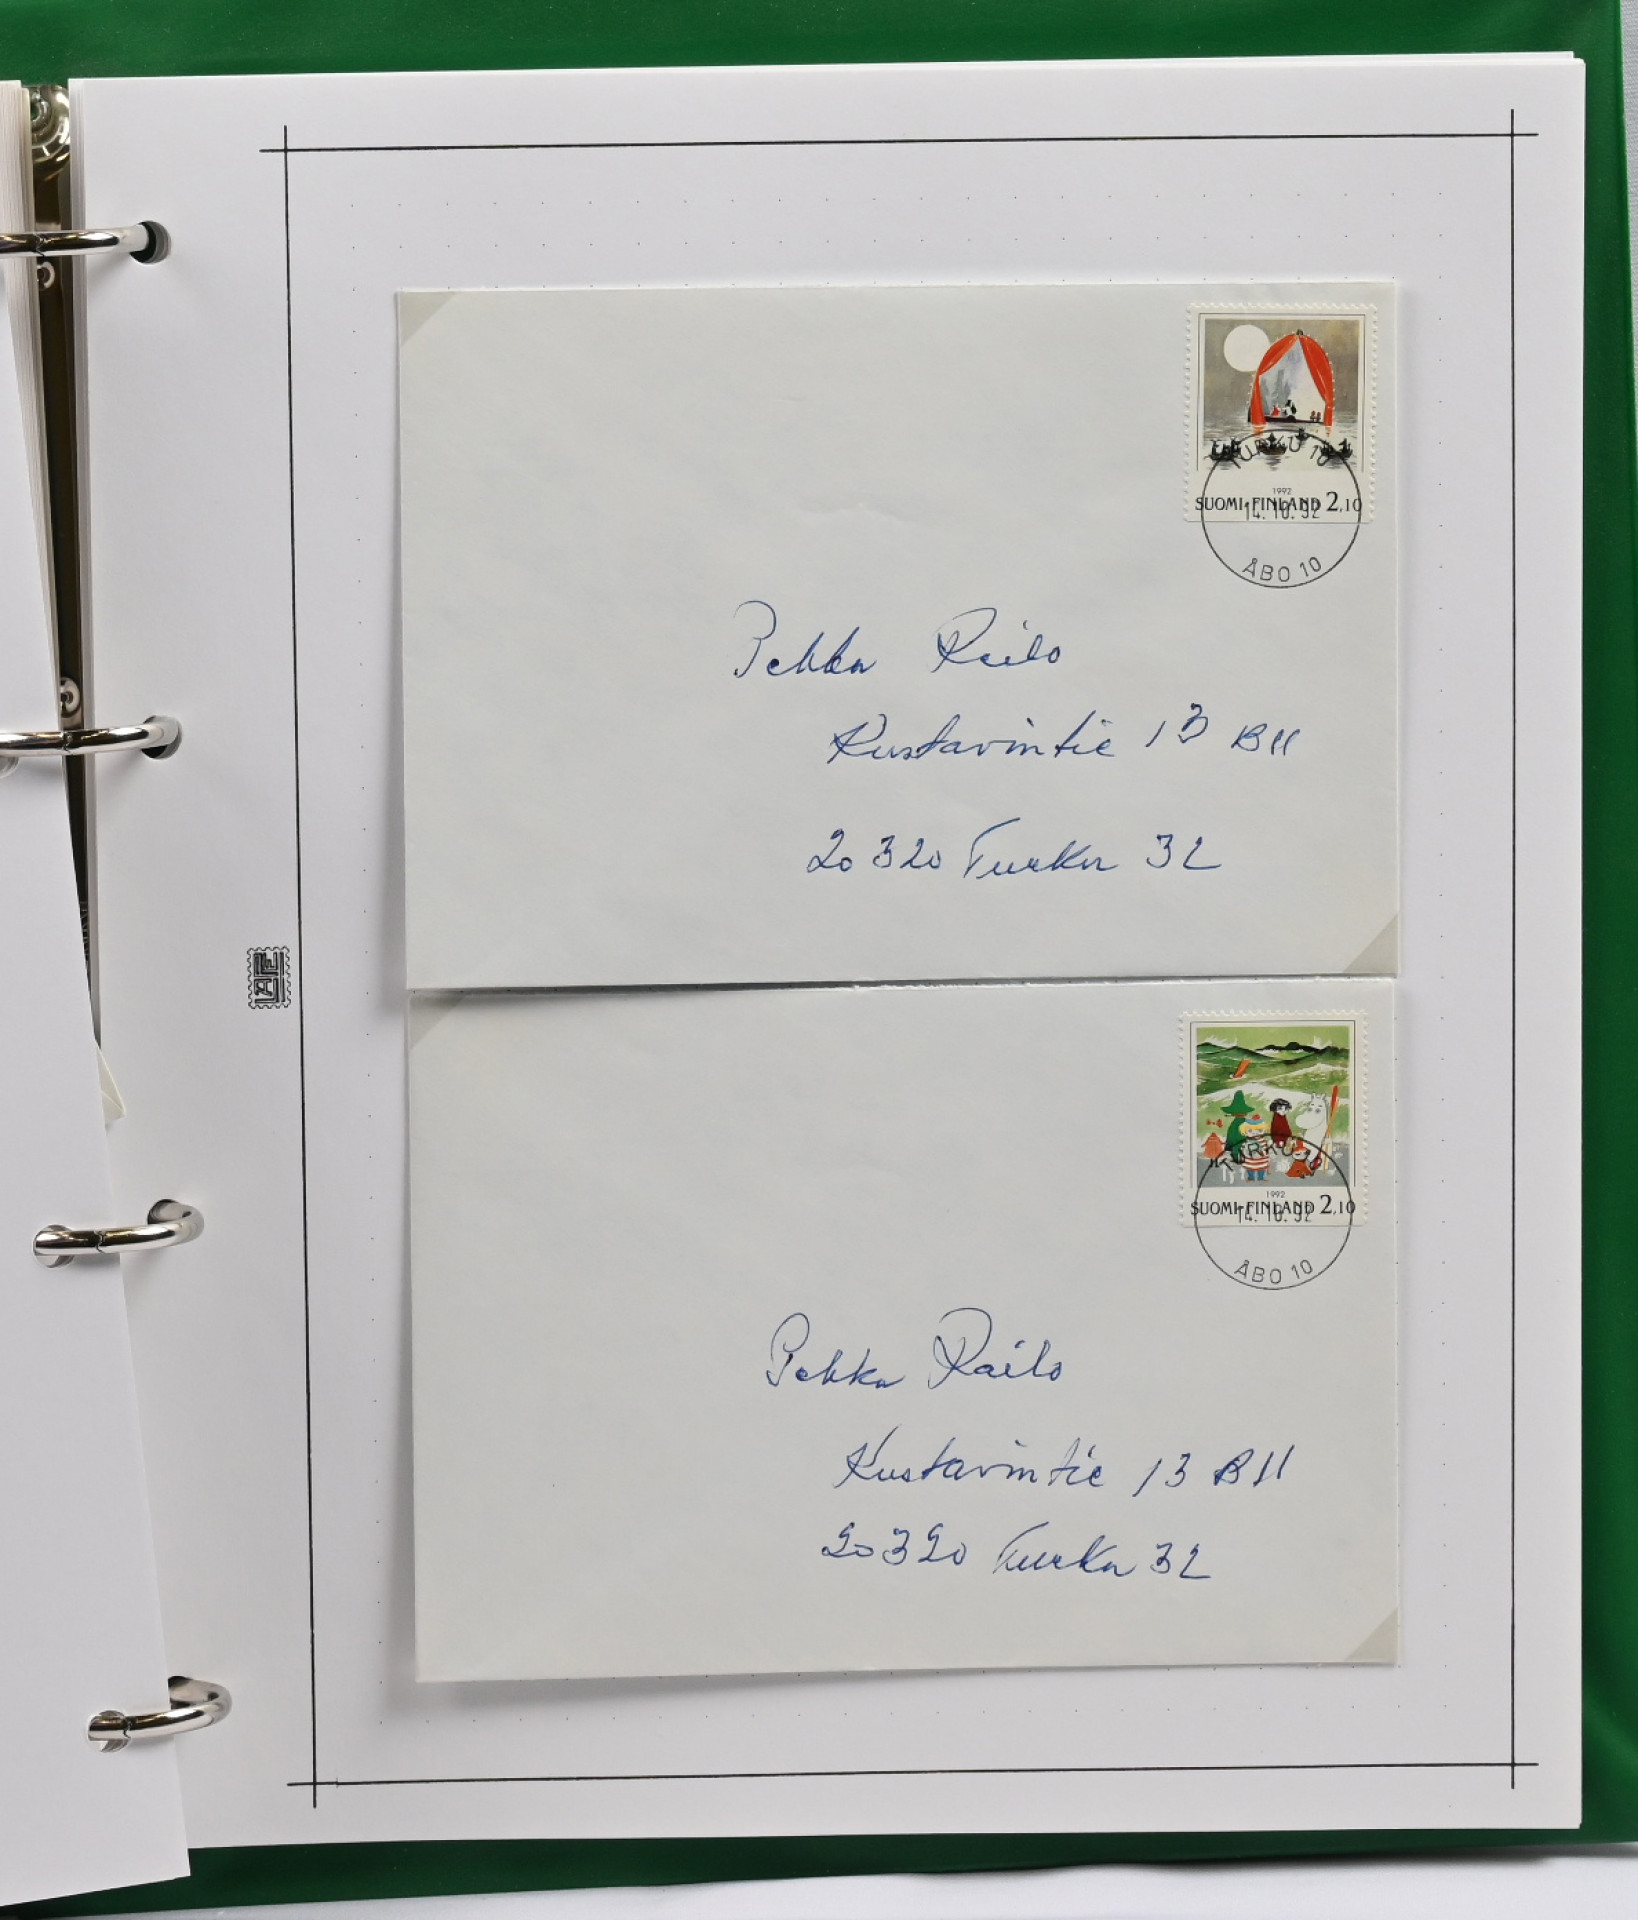 1992
SUOMI-FINLAND 2,10
TURKU 10
14.10.92
ÅBO 10
Pekka Railo
Kustavintie 13 B11
20320 Turku 32
LAPE
1992
SUOMI-FINLAND 2,10
TURKU
14.10.92
ÅBO 10
Pekka Railo
Kustavintie 13 B11
20320 Turku 32